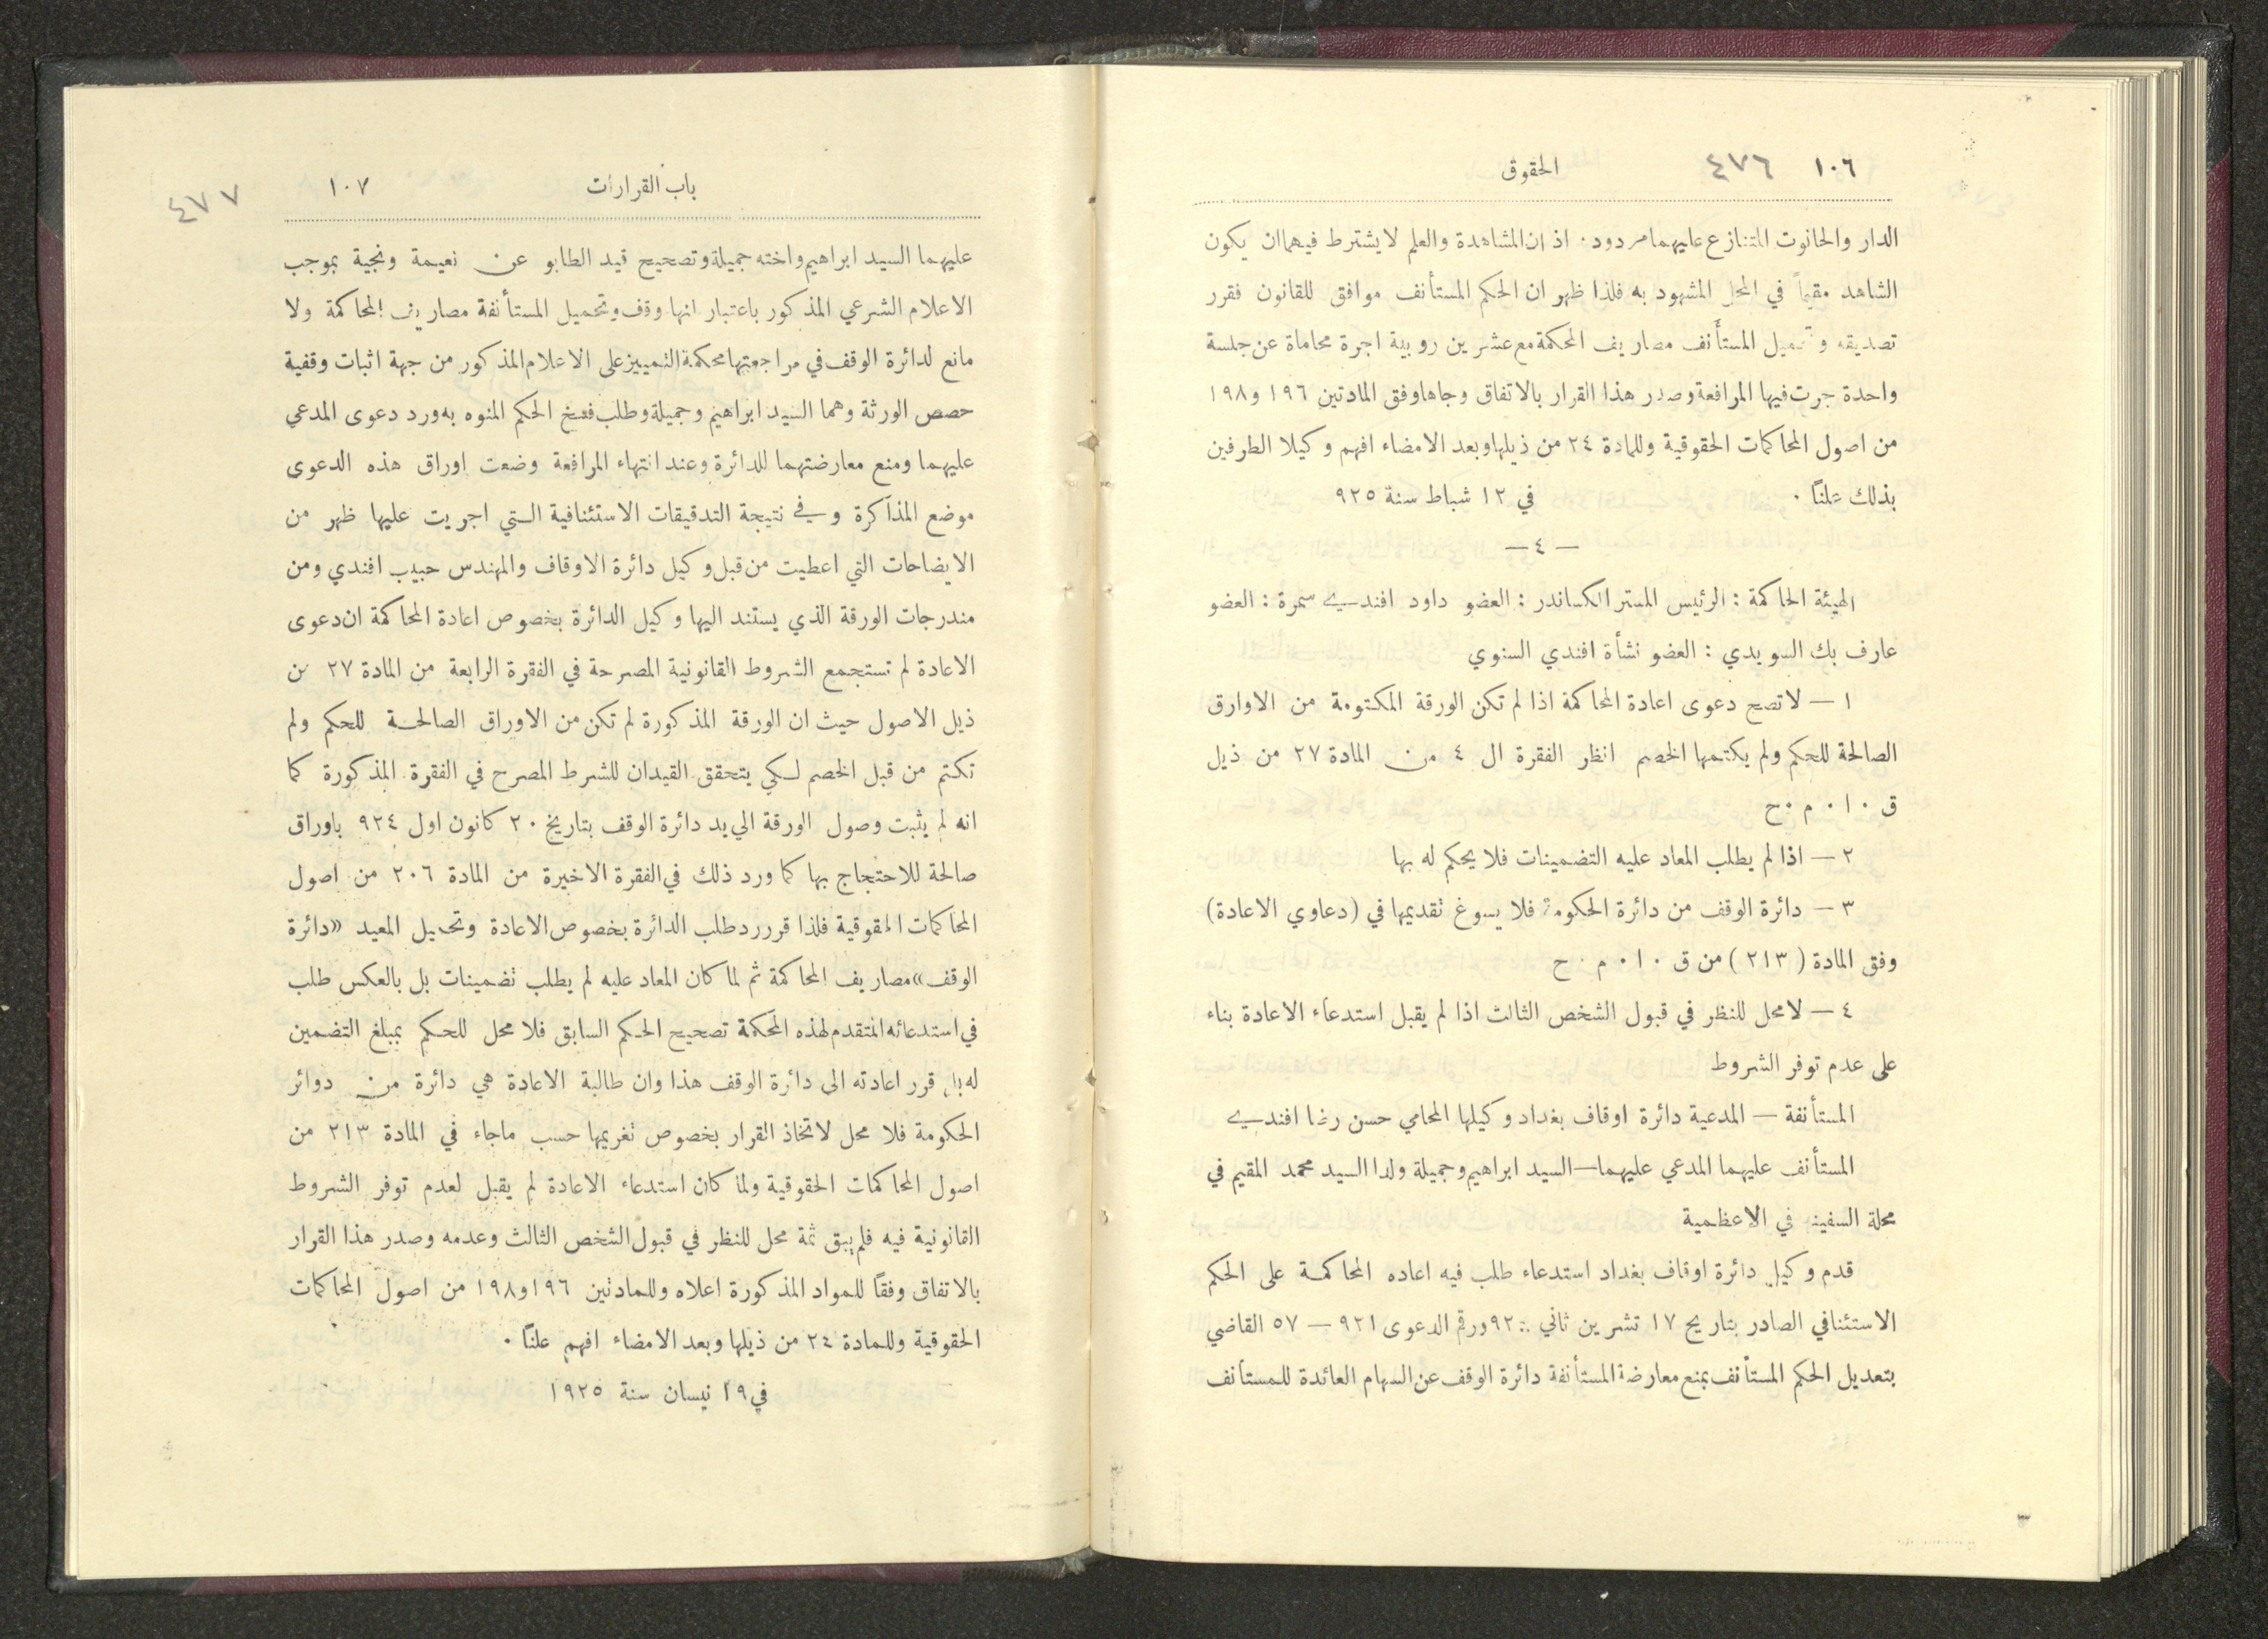 ١٠٦ ٤٧٦ الحقوق
الدار والحانوت المتنازع عليهما مردود. اذ ان المشاهدة والعلم لا يشترط فيهما ان يكون
الشاهد مقيماً في المحل المشهود به فلذا ظهر ان الحكم المستأنف موافق للقانون فقرر
تصديقه وتحميل المستأنف مصاريف المحكمة مع عشرين روبية اجرة محاماة عن جلسة
واحدة جرت فيها المرافعة وصدر هذا القرار بالاتفاق وجاها وفق المادتين ١٩٦ و١٩٨
من اصول المحاكمات الحقوقية وللمادة ٢٤ من ذيلها وبعد الامضاء افهم وكيلا الطرفين
بذلك علنًا . في ١٢ شباط سنة ٩٢٥
— ٤ —
الهيئة الحاكمة : الرئيس المستر الكساندر : العضو داود افندي سمرة : العضو
عارف بك السويدي : العضو نشأة افندي السنوي
١ — لا تصح دعوى اعادة المحاكمة اذا لم تكن الورقة المكتومة من الاوارق
الصالحة للحكم ولم يكتمها الخصم انظر الفقرة ال ٤ من المادة ٢٧ من ذيل
ق . ا . م . ح
٢ — اذا لم يطلب المعاد عليه التضمينات فلا يحكم له بها
٣ — دائرة الوقف من دائرة الحكومة فلا يسوغ تقديمها في (دعاوي الاعادة)
وفق المادة ( ٢١٣ ) من ق . ا . م . ح
٤ — لا محل للنظر في قبول الشخص الثالث اذا لم يقبل استدعاء الاعادة بناء
على عدم توفر الشروط
المستأنفة — المدعية دائرة اوقاف بغداد وكيلها المحامي حسن رضا افندي
المستأنف عليهما المدعي عليهما — السيد ابراهيم وجميلة ولدا السيد محمد المقيم في
محلة السفينة في الاعظمية
قدم وكيل دائرة اوقاف بغداد استدعاء طلب فيه اعاده المحاكمة على الحكم
الاستئنافي الصادر بتاريخ ١٧ تشرين ثاني ٩٢ ورقم الدعوى ٩٢١ — ٥٧ القاضي
بتعديل الحكم المستأنف بمنع معارضة المستأنفة دائرة الوقف عن السهام العائدة للمستأنف
باب القرارات ١٠٧ ٤٧٧
عليهما السيد ابراهيم واخته جميلة وتصحيح قيد الطابو عن نعيمة ونجية بموجب
الاعلام الشرعي المذكور باعتبار انها وقف وتحميل المستأنفة مصاريف المحاكمة ولا
مانع لدائرة الوقف في مراجعتها محكمة التمييز على الاعلام المذكور من جهة اثبات وقفية
حصص الورثة وهما السيد ابراهيم وجميلة وطلب فسخ الحكم المنوه به ورد دعوى المدعي
عليهما ومنع معارضتهما للدائرة وعند انتهاء المرافعة وضعت اوراق هذه الدعوى
موضع المذاكرة وفي نتيجة التدقيقات الاستئنافية التي اجريت عليها ظهر من
الايضاحات التي اعطيت من قبل وكيل دائرة الاوقاف والمهندس حبيب افندي ومن
مندرجات الورقة الذي يستند اليها وكيل الدائرة بخصوص اعادة المحاكمة ان دعوى
الاعادة لم تستجمع الشروط القانونية المصرحة في الفقرة الرابعة من المادة ٢٧ من
ذيل الاصول حيث ان الورقة المذكورة لم تكن من الاوراق الصالحة للحكم ولم
تكتم من قبل الخصم لكي يتحقق القيدان للشرط المصرح في الفقرة المذكورة كما
انه لم يثبت وصول الورقة الي يد دائرة الوقف بتاريخ ٢٠ كانون اول ٩٢٤ باوراق
صالحة للاحتجاج بها كما ورد ذلك في الفقرة الاخيرة من المادة ٢٠٦ من اصول
المحاكمات الحقوقية فلذا قرر رد طلب الدائرة بخصوص الاعادة وتحميل المعيد «دائرة
الوقف» مصاريف المحاكمة ثم لما كان المعاد عليه لم يطلب تضمينات بل بالعكس طلب
في استدعائه المتقدم لهذه المحكمة تصحيح الحكم السابق فلا محل للحكم بمبلغ التضمين
له بل قرر اعادته الى دائرة الوقف هذا وان طالبة الاعادة هي دائرة من دوائر
الحكومة فلا محل لاتخاذ القرار بخصوص تغريمها حسب ماجاء في المادة ٢١٣ من
اصول المحاكمات الحقوقية ولما كان استدعاء الاعادة لم يقبل لعدم توفر الشروط
القانونية فيه فلم يبق ثمة محل للنظر في قبول الشخص الثالث وعدمه وصدر هذا القرار
بالاتفاق وفقًا للمواد المذكورة اعلاه وللمادتين ١٩٦ و١٩٨ من اصول المحاكمات
الحقوقية وللمادة ٢٤ من ذيلها وبعد الامضاء افهم علنًا .
في ١٩ نيسان سنة ١٩٢٥